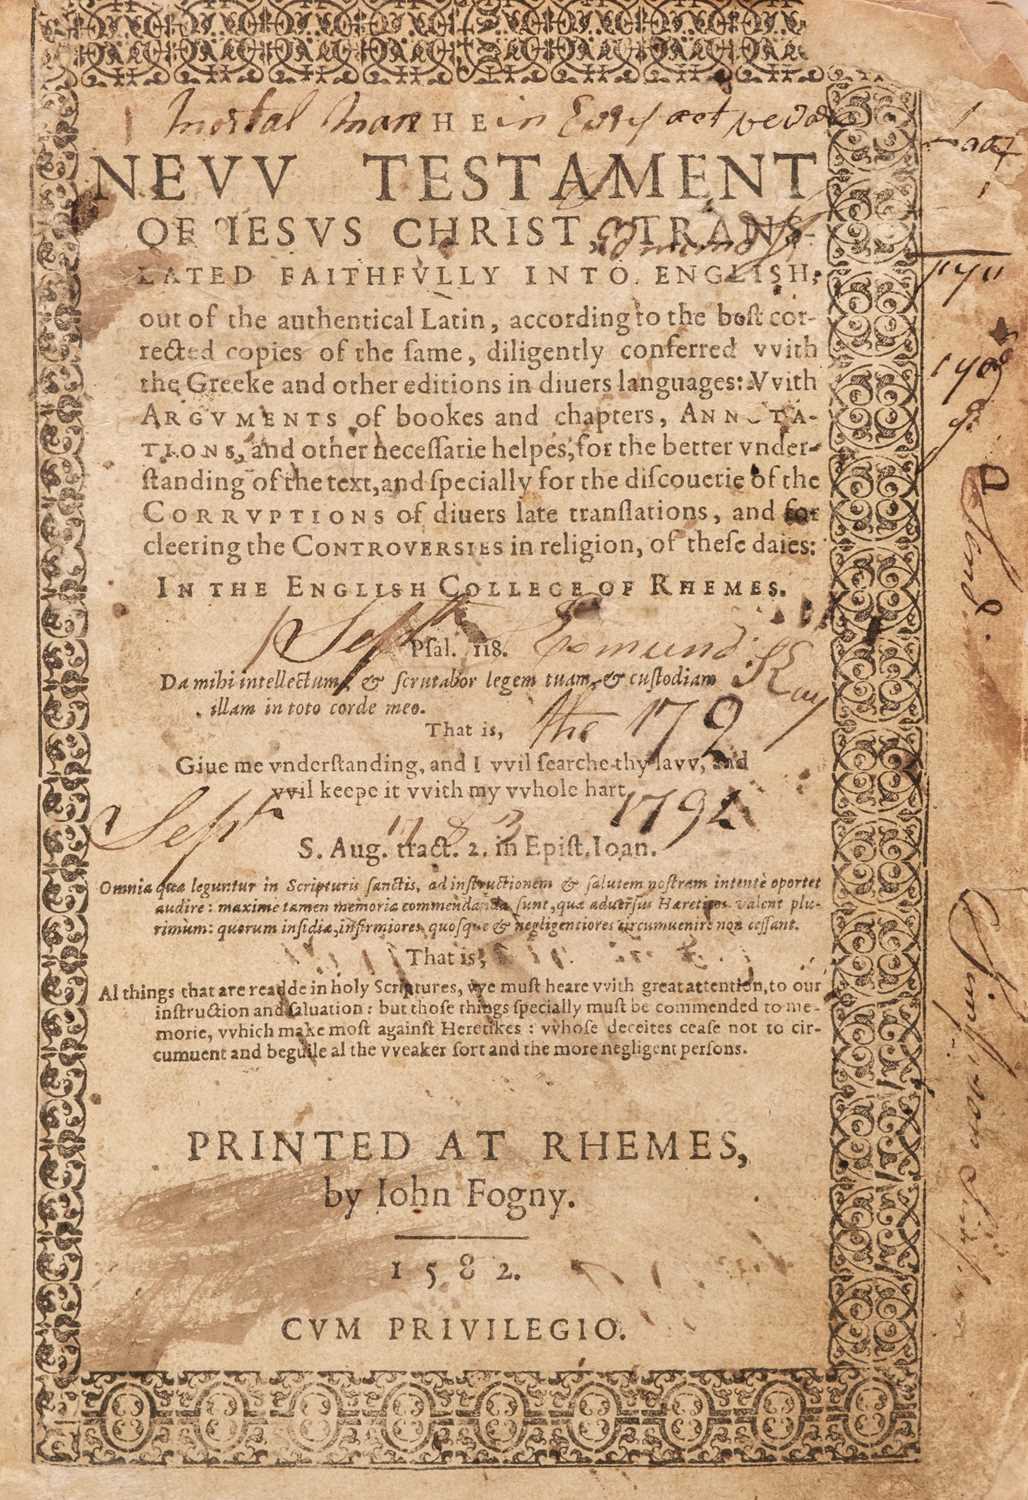 Mortal Man in Every act
THE
NEVV TESTAMENT
OF IESVS CHRIST, TRANS-
Edmund
LATED FAITHFVLLY INTO ENGLISH,
out of the authentical Latin, according to the best cor-
rected copies of the same, diligently conferred vvith
the Greeke and other editions in diuers languages: Vvith
ARGVMENTS of bookes and chapters, ANNOTA-
TIONS, and other necessarie helpes, for the better vnder-
standing of the text, and specially for the discouerie of the
CORRVPTIONS of diuers late translations, and for
cleering the CONTROVERSIES in religion, of these daies:
IN THE ENGLISH COLLEGE OF RHEMES.
Septh Edmund Kay
Psal. 118.
Da mihi intellectum, & scrutabor legem tuam, & custodiam
illam in toto corde meo.
That is,
the 179
Giue me vnderstanding, and I vvil searche thy lavv, and
vvil keepe it vvith my vvhole hart.
Septh 1783 1792
S. Aug. tract. 2. in Epist. Ioan.
Omnia quæ leguntur in Scripturis sanctis, ad instructionem & salutem nostram intentè oportet
audire: maxime tamen memoriæ commendanda sunt, quæ aduersus Hæreticos valent plu-
rimum: quorum insidiæ, infirmiores quosque & negligentiores circumuenire non cessant.
That is,
Al things that are readde in holy Scriptures, vve must heare vvith great attention, to our
instruction and saluation: but those things specially must be commended to me-
morie, vvhich make most against Heretikes: vvhose deceites cease not to cir-
cumuent and beguile al the vveaker sort and the more negligent persons.
PRINTED AT RHEMES,
by Iohn Fogny.
1582.
CVM PRIVILEGIO.